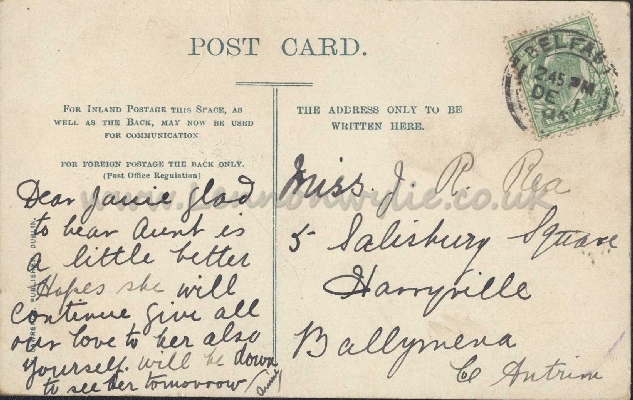 POST CARD.
BELFAST
2.45 PM
DE 1
FOR INLAND POSTAGE THIS SPACE, AS
WELL AS THE BACK, MAY NOW BE USED
FOR COMMUNICATION
FOR FOREIGN POSTAGE THE BACK ONLY.
(Post Office Regulation)
THE ADDRESS ONLY TO BE
WRITTEN HERE.
Dear Janie Glad
to hear Aunt is
a little better
Hopes she will
continue give all
our love to her also
yourself. will be down
to see her tomorrow
Miss. J. R. Rea
5 Salisbury Square
Harryville
Ballymena
Co Antrim
PUBLISHER, DUBLIN.
www.lennonwylie.co.uk